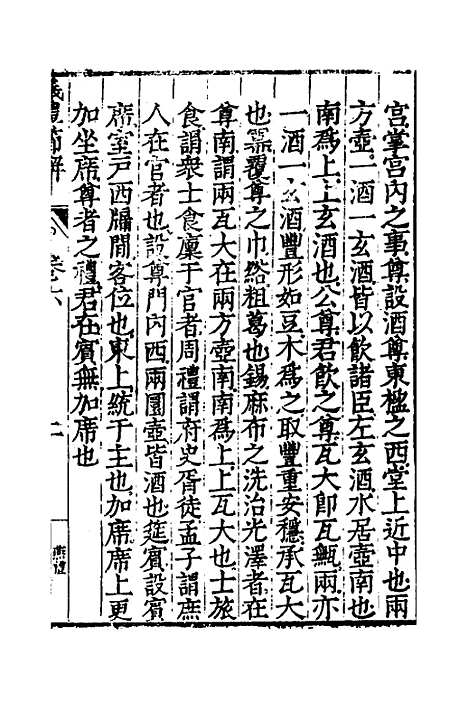 宮掌宮內之事尊設酒尊東楹之西堂上近中也兩
方壺一酒一玄酒皆以飲諸臣左玄酒水居壺南也
南爲上上玄酒也公尊君飲之尊瓦大卽瓦甒兩亦
一酒一玄酒豐形如豆木爲之取豐重安穩承瓦大
也冪覆尊之巾綌粗葛也錫麻布之洗治光澤者在
尊南謂兩瓦大在兩方壺南南爲上上瓦大也士旅
食謂衆士食廩于官者周禮謂府史胥徒孟子謂庶
人在官者也設尊門內西兩圜壺皆酒也筵賓設賓
席室戶西牖閒客位也東上統于主也加席席上更
加坐席尊者之禮君在賓無加席也
儀禮節解
卷六
二
燕禮